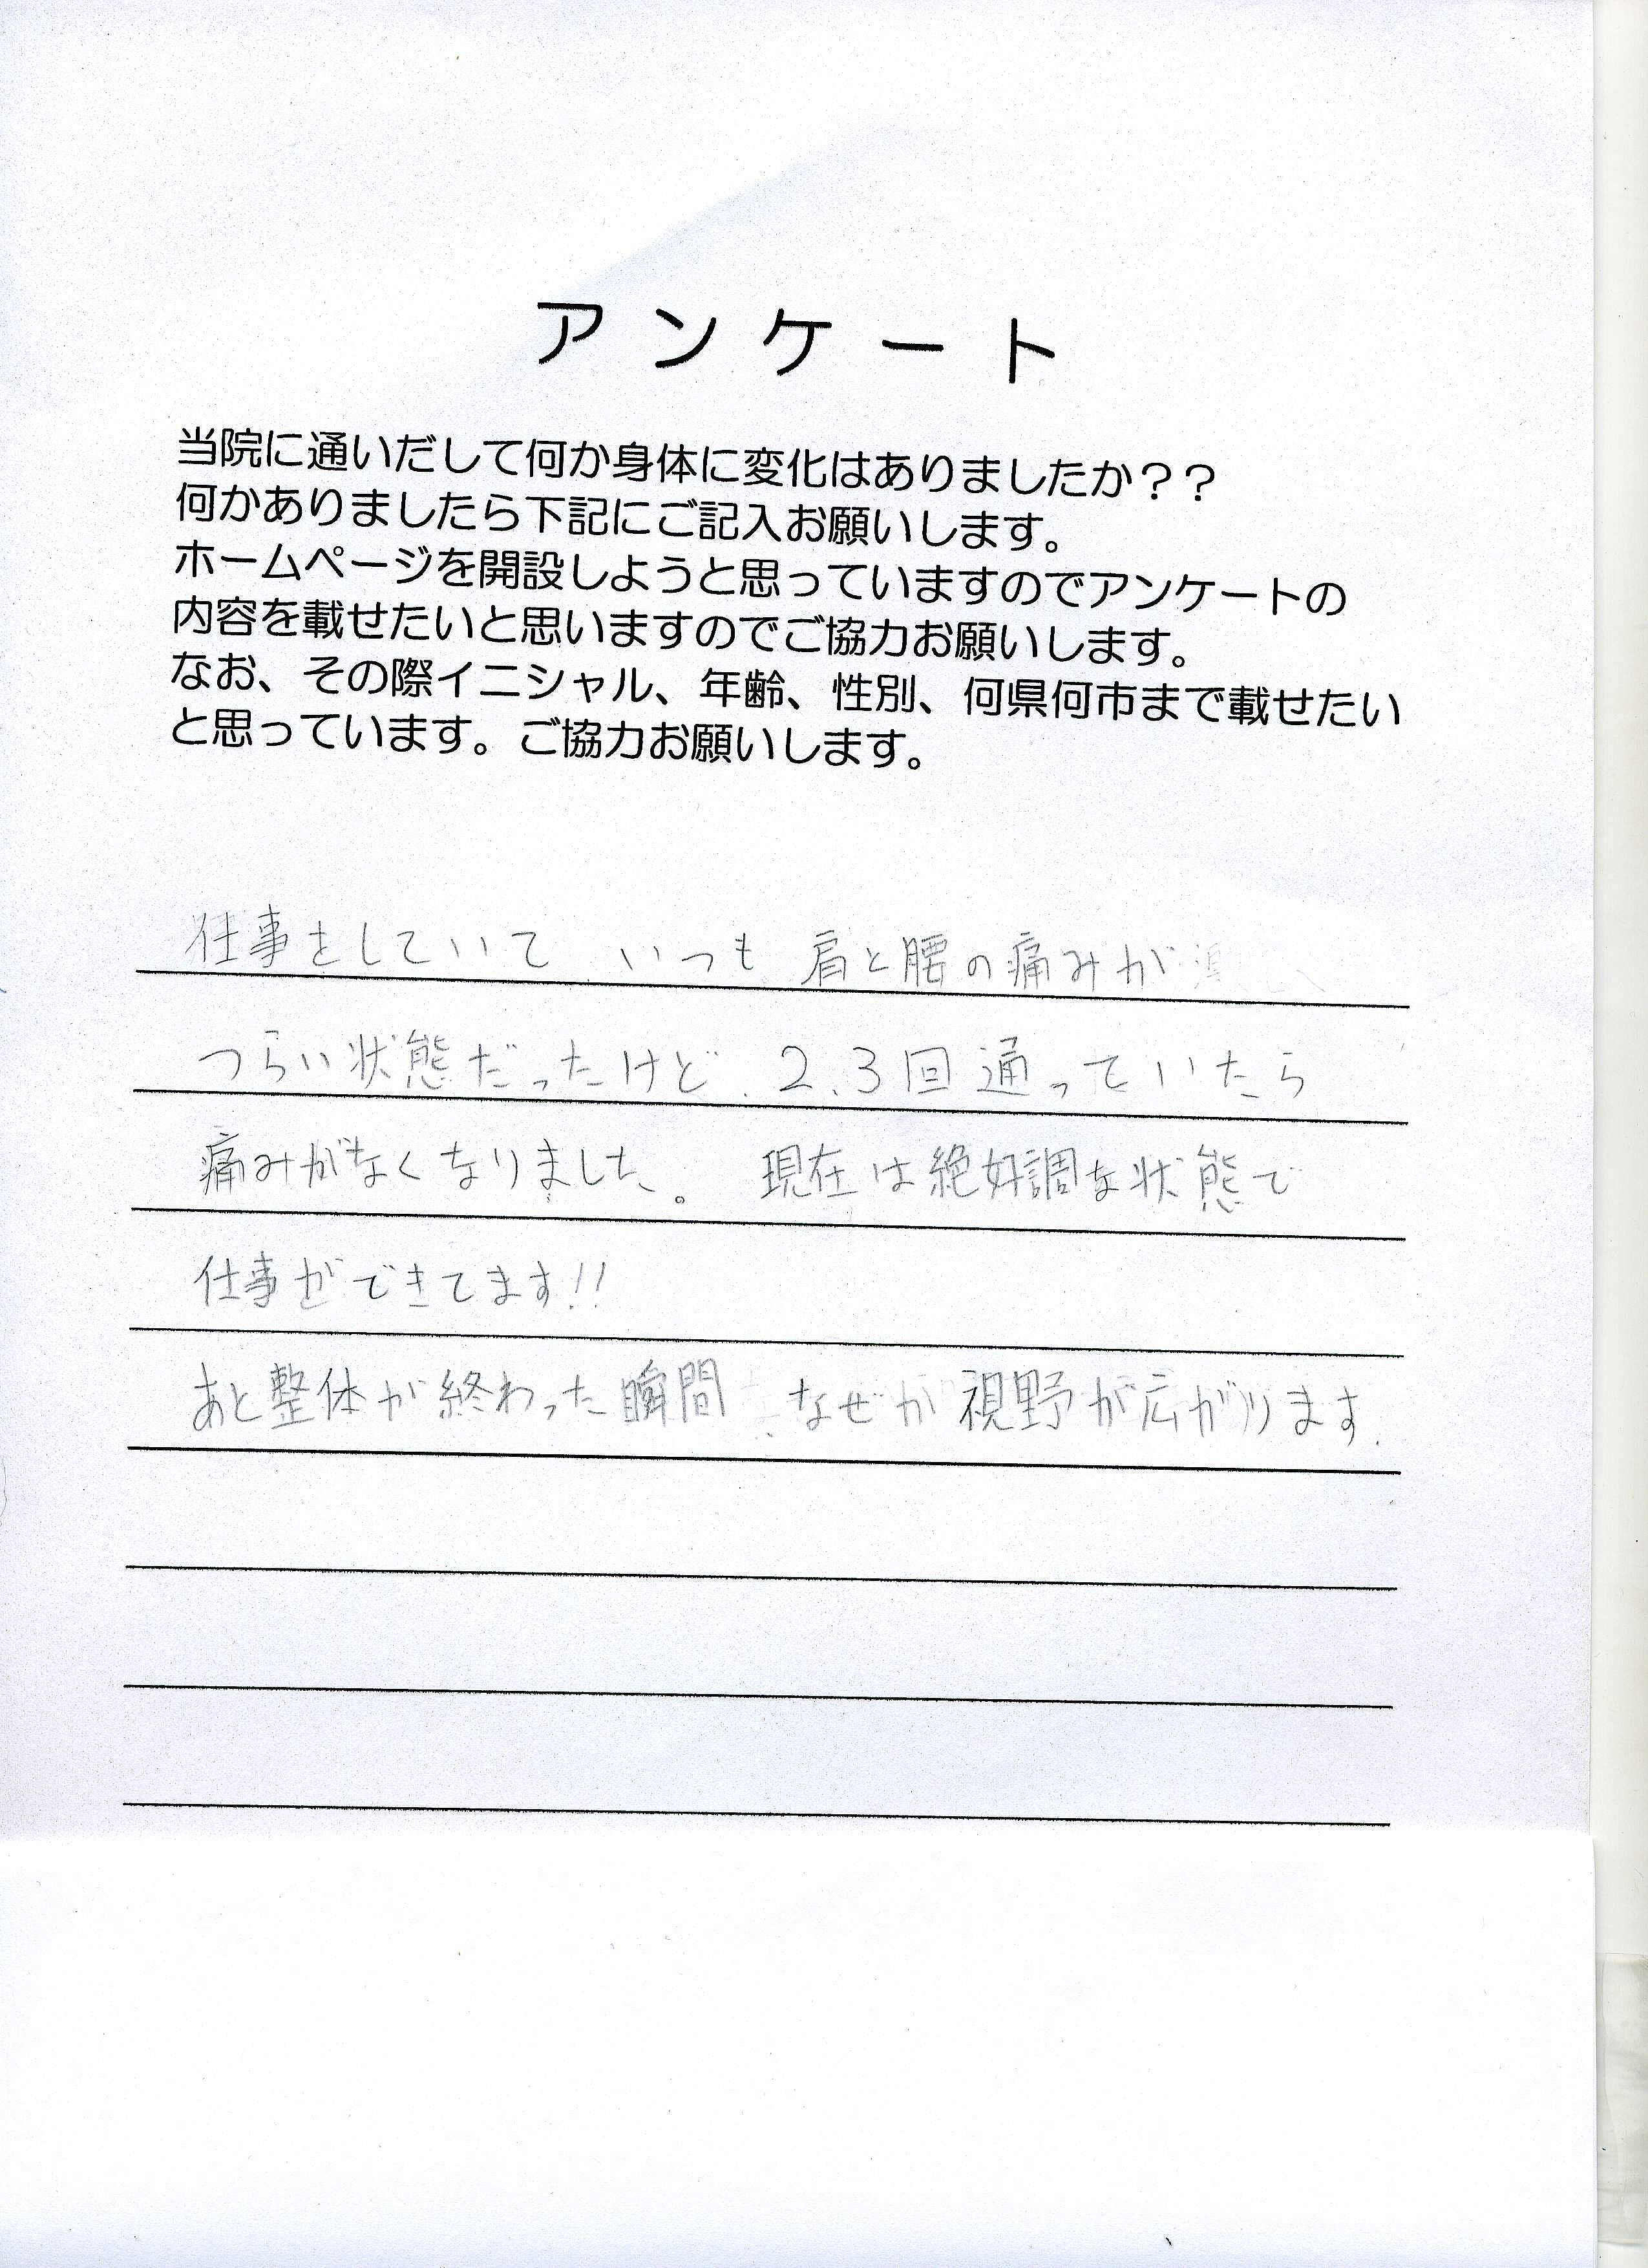 アンケート
当院に通いだして何か身体に変化はありましたか？？
何かありましたら下記にご記入お願いします。
ホームページを開設しようと思っていますのでアンケートの
内容を載せたいと思いますのでご協力お願いします。
なお、その際イニシャル、年齢、性別、何県何市まで載せたい
と思っています。ご協力お願いします。
仕事をしていて いつも 肩と腰の痛みが
つらい状態だったけど、2、3回通っていたら
痛みがなくなりました。 現在は絶好調な状態で
仕事ができてます!!
あと整体が終わった瞬間、なぜか視野が広がります.